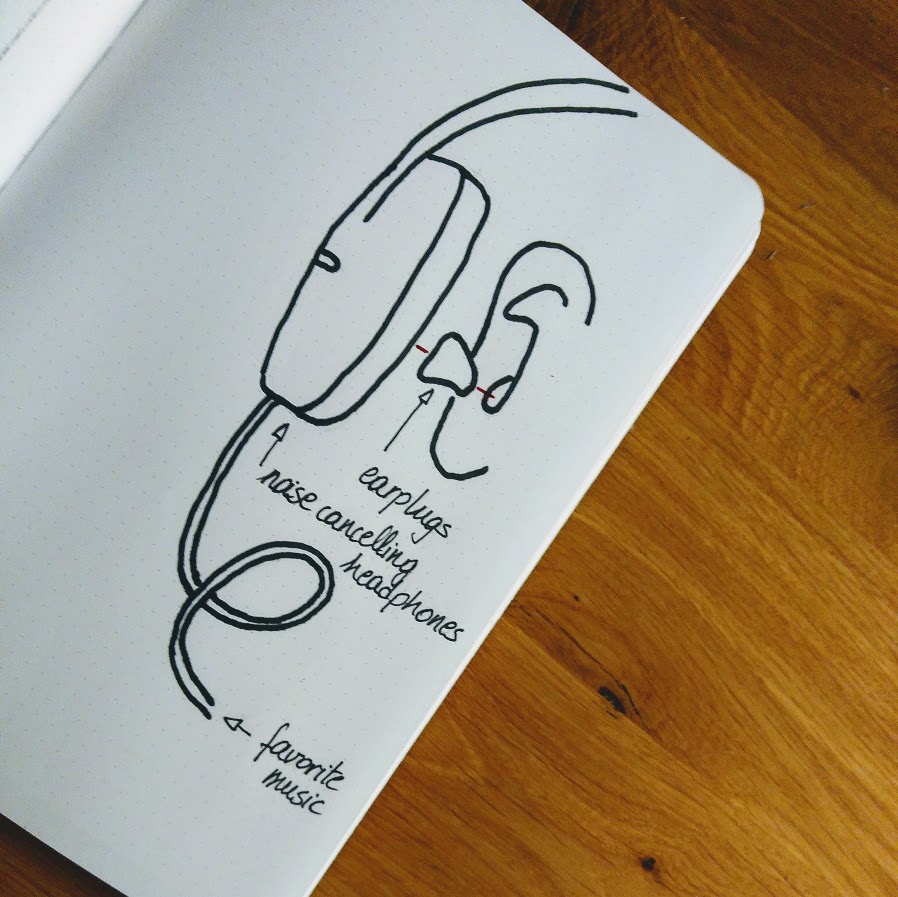 earplugs
noise cancelling
headphones
favorite
music